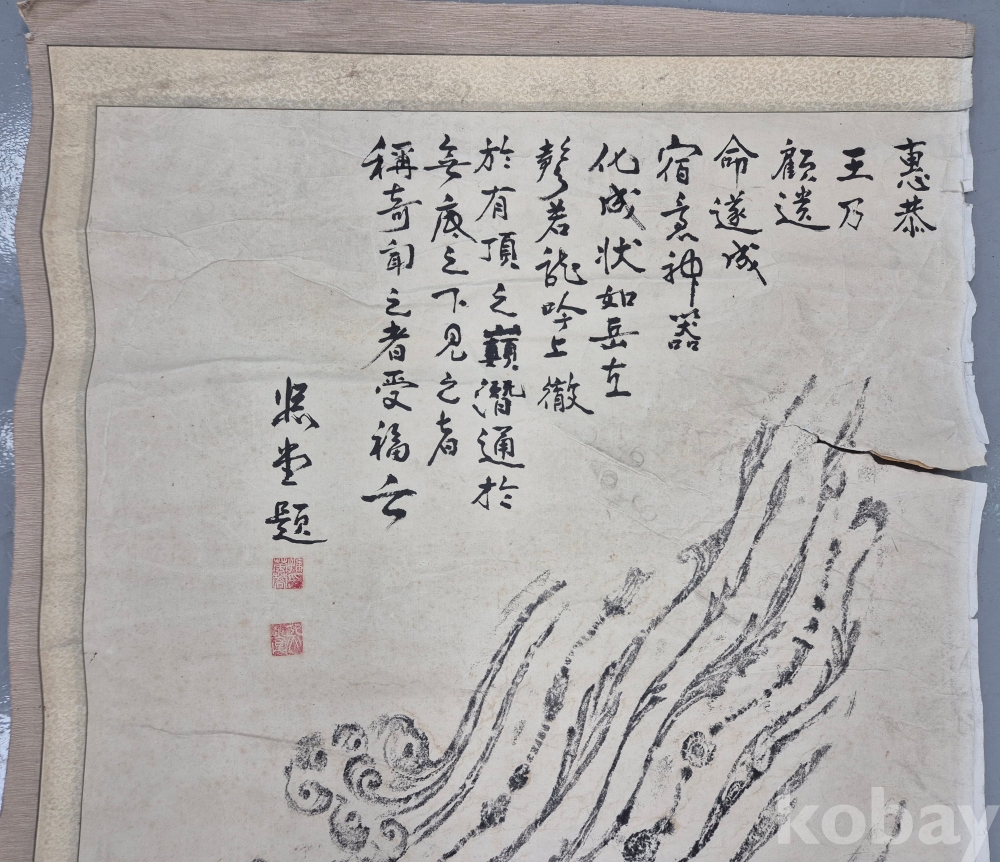 惠恭
王乃
顧遺
命遂成
宿意神器
化成狀如岳立
聲若龍吟上徹
於有頂之巔潛通於
無底之下見之者
稱奇聞之者受福云
堂題
kobay